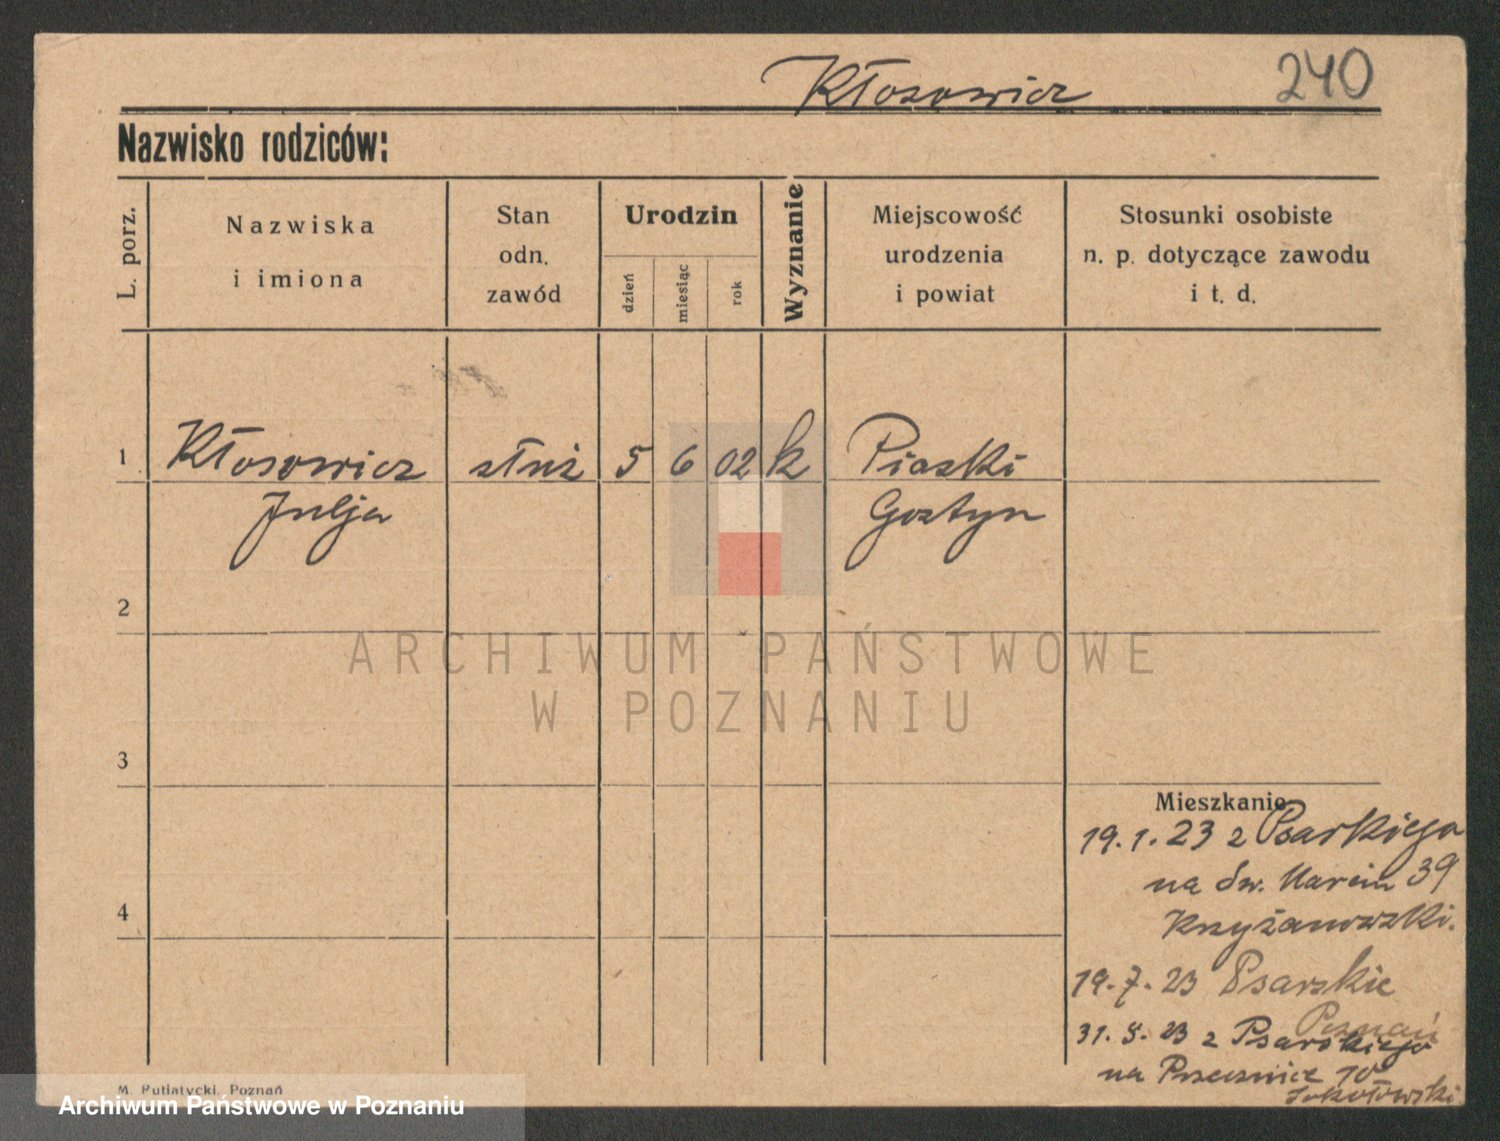 Kłosowicz 240
Nazwisko rodziców:
L. porz.
Nazwiska
i imiona
Stan
odn.
zawód
Urodzin
dzień
miesiąc
rok
Wyznanie
Miejscowość
urodzenia
i powiat
Stosunki osobiste
n. p. dotyczące zawodu
i t. d.
1 Kłosowicz służ 5 6 02 k Piaski
Julja Gostyn
2
ARCHIWUM PAŃSTWOWE
W POZNANIU
3
Mieszkanie
19.1.23 z Psarskiego
na Św. Marcin 39
Krzyżanowski.
4
19.7.23 Psarskie
Poznań
31.8.23 z Psarskiego
na Przecznice 10
Sokołowski
M. Putiatycki, Poznań
Archiwum Państwowe w Poznaniu